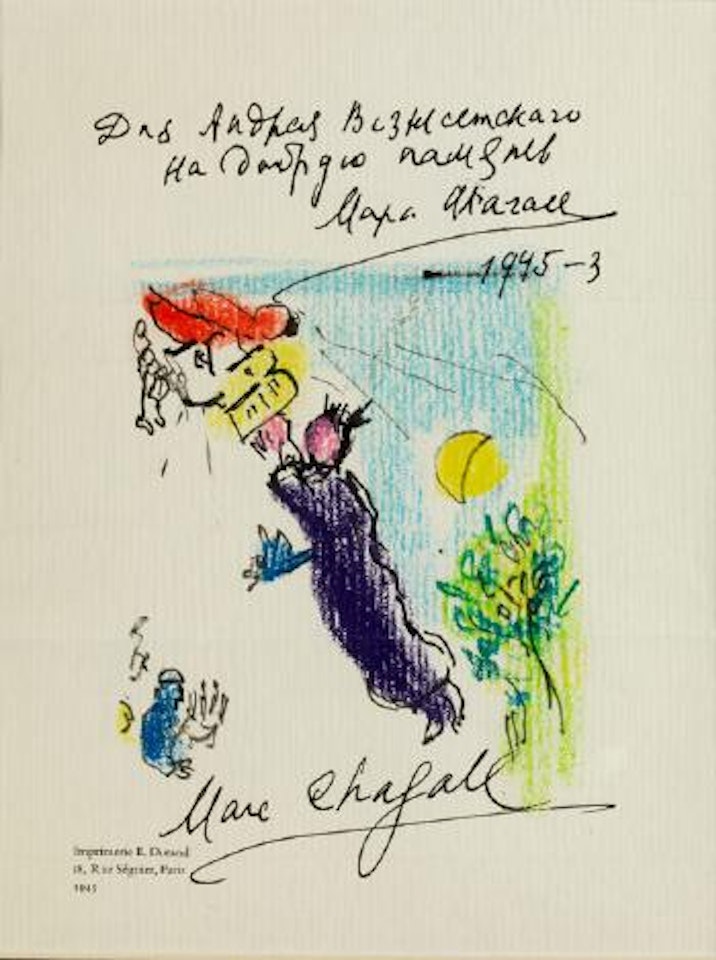 Для Андрея Вознесенскаго
на добрую память
Марк Шагалл
1945-3
Marc Chagall
Imprimerie E. Durand
18, Rue Séguier, Paris
1945